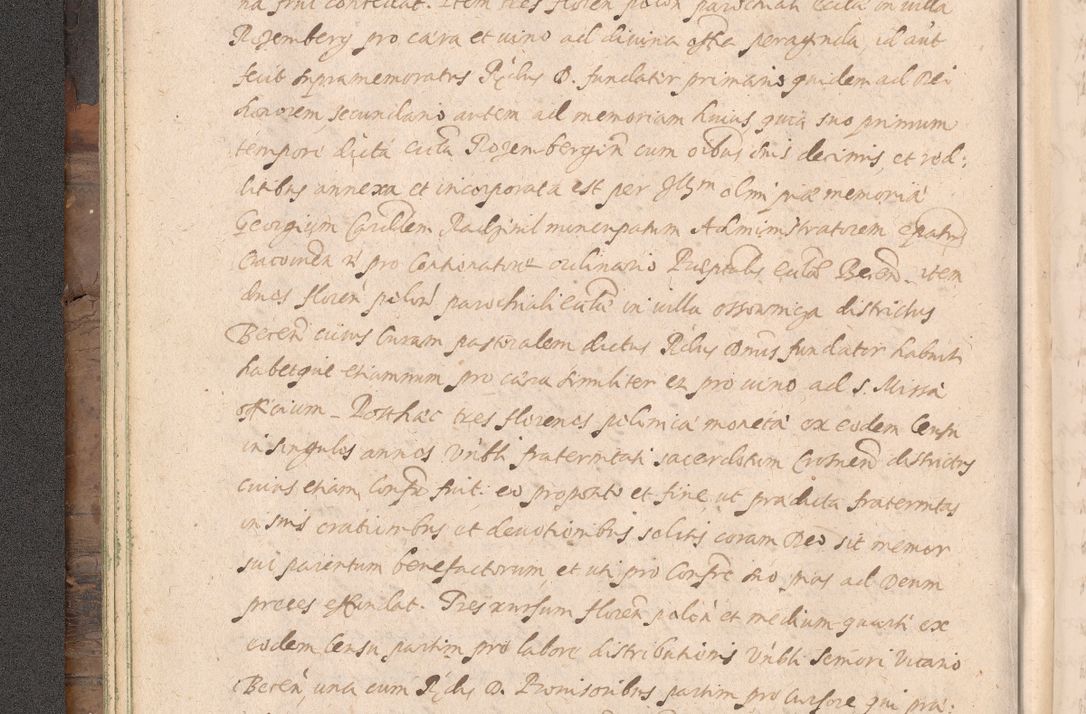 na frui contedat. Item tres floren polon parochiali Ecclae in villa
Rozemberg pro caera et uino ad diuina offia peragenda, id aut
fecit supramemoratus Rdus D. fundator primario quidem ad Dei
honorem, secundario autem ad memoriam huius, quia suo primum
tempore dicta Ecclia Rozembergen cum oibus suis decimis, et red:
ditibus annexa et incorporata est per Illm olim piae memoriae
Georgium Cardlem Radziuil nuncupatum Administratorem Epatus
Cracouien pro Contionatore ordinario Praeptalis Ecclae Beren. item
duos floren polon parochiali Ecclae in uilla ossowniga districtus
Beren cuius Curam pastoralem dictus Rdus Dnus fundator habuit
habetque etiamnum pro caera similiter et pro uino ad S. Missae
officium. Posthac tres florenos polonica moneta ex eodem Censu
in singulos annos Vnbli fraternitati sacerdotum districtus
cuius etiam Confr fuit. eo proposito et fine, ut praedicta fraternitas
in suis orationibus et deuotionibus solitis coram Deo sit memor
sui parentum benefactorum, et uti pro Confre suo pias ad Deum
preces effundat. Tres rursum floren polon et medium quarti ex
eodem Censu partim pro labore distributionis Vnbli Seniori Vicario
Beren, una cum Rdis D. Prouisoribus partim pro Cursore qui prae: